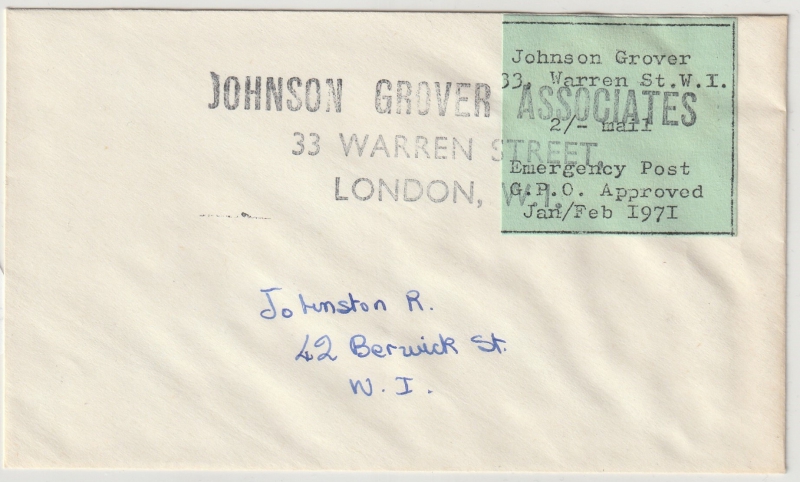 Johnson Grover
33, Warren St.W.I.
2/- mail
Emergency Post
G.P.O. Approved
Jan/Feb I97I
JOHNSON GROVER ASSOCIATES
33 WARREN STREET,
LONDON, W.1.
Johnston R.
42 Berwick St.
W. I.